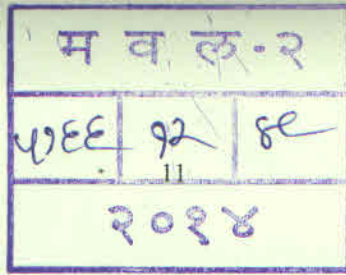 म व ल - २
५१६६ १२ ४९
11
२०१४